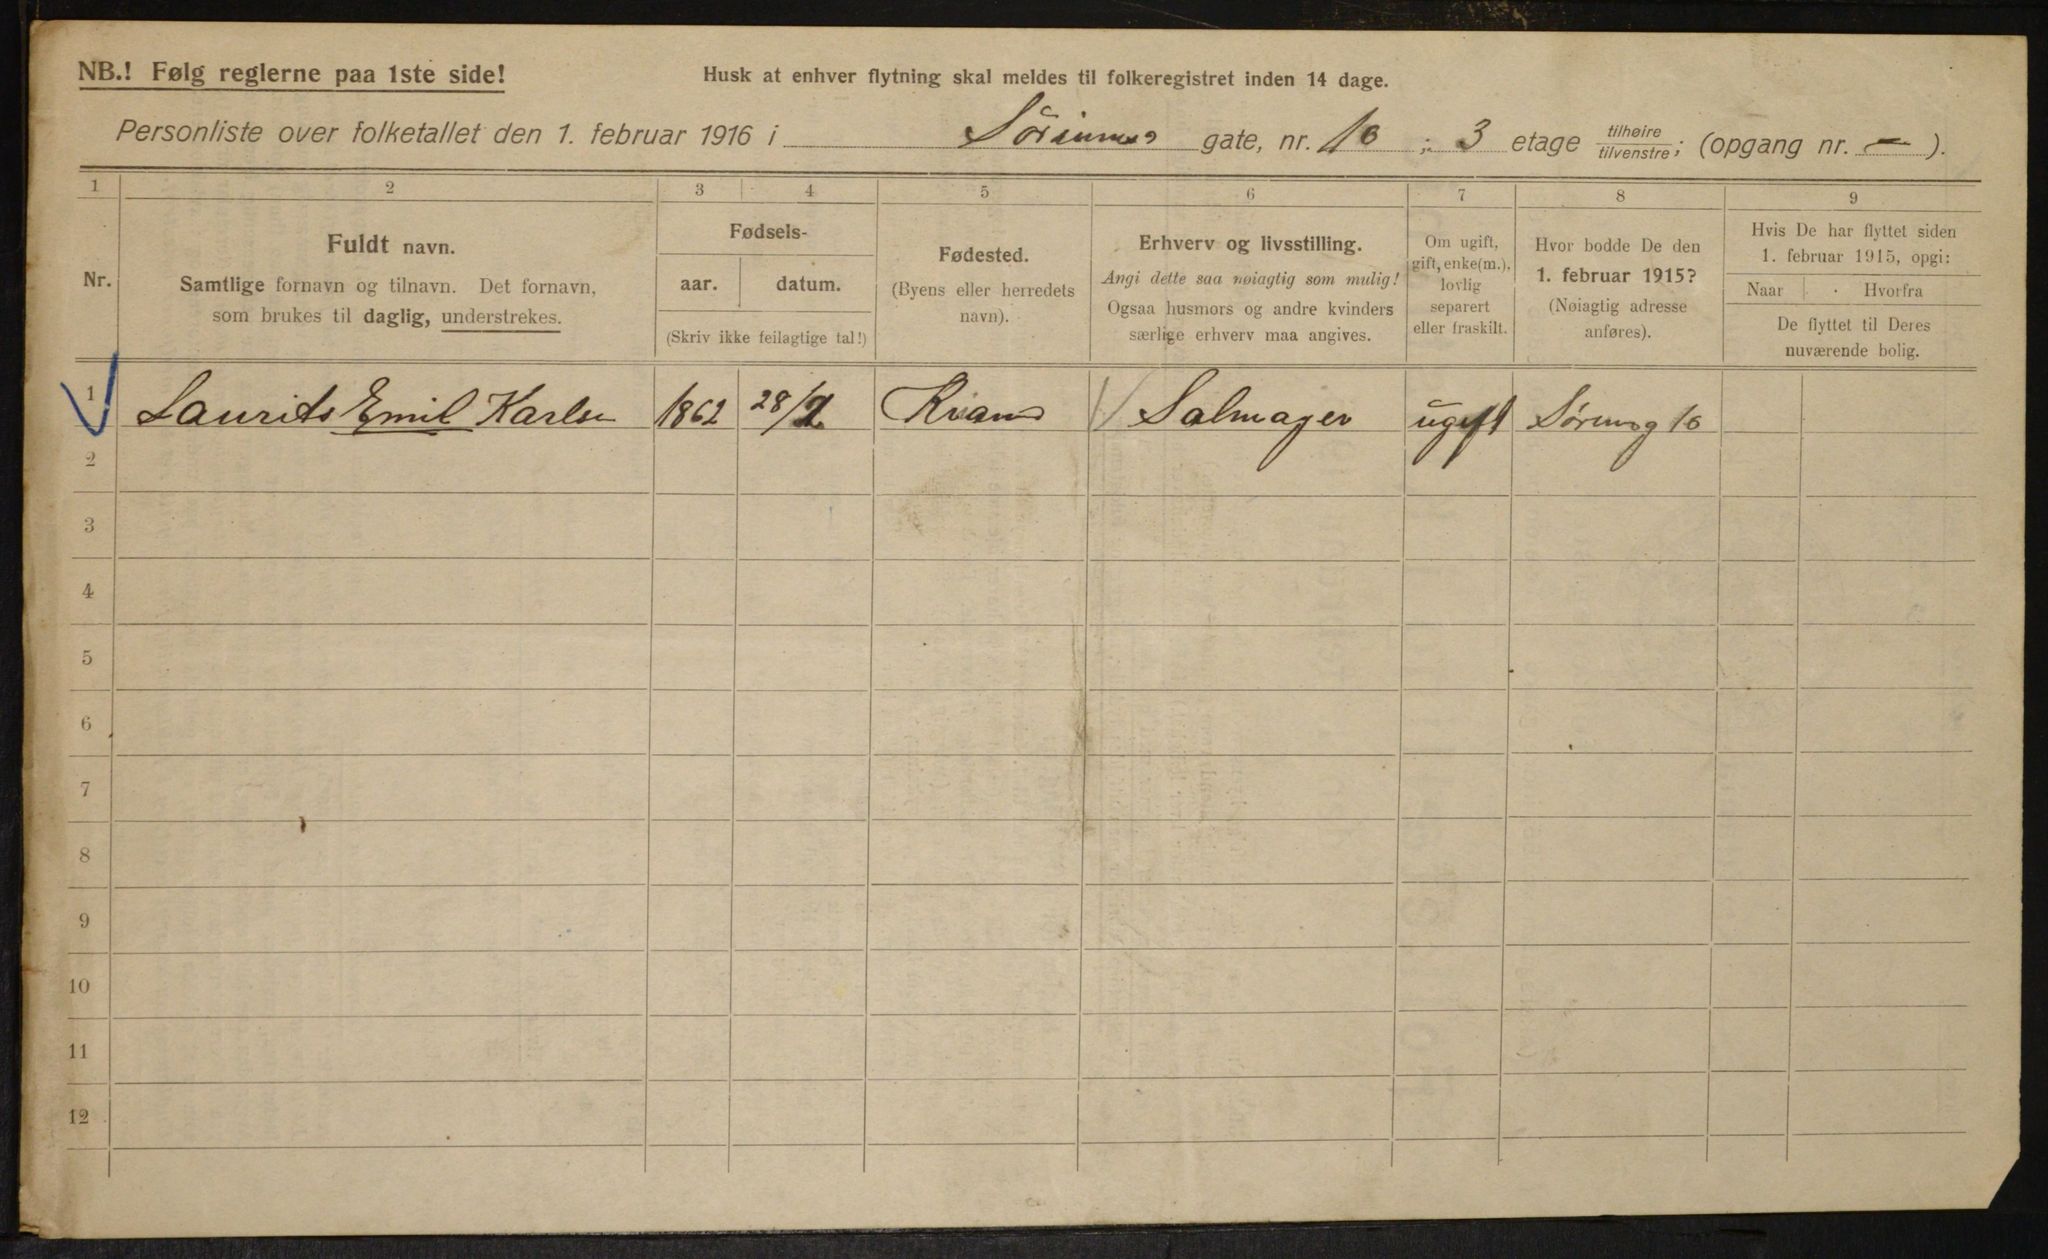 NB.! Følg reglerne paa 1ste side!
Husk at enhver flytning skal meldes til folkeregistret inden 14 dage.
Personliste over folketallet den 1. februar 1916 i gate, nr. 10 ; 3 etage tilhøire tilvenstre; (opgang nr. — ).
1 2 3 4 5 6 7 8 9
Nr.
Fuldt navn.
Samtlige fornavn og tilnavn. Det fornavn,
som brukes til daglig, understrekes.
Fødsels-
aar. datum.
(Skriv ikke feilagtige tal!)
Fødested.
(Byens eller herredets
navn).
Erhverv og livsstilling.
Angi dette saa nøiagtig som mulig!
Ogsaa husmors og andre kvinders
særlige erhverv maa angives.
Om ugift,
gift, enke(m.),
lovlig
separert
eller fraskilt.
Hvor bodde De den
1. februar 1915?
(Nøiagtig adresse
anføres).
Hvis De har flyttet siden
1. februar 1915, opgi:
Naar Hvorfra
De flyttet til Deres
nuværende bolig.
1 Laurits Emil Karlsen 1862 28/2 Salmager ugift 10
2
3
4
5
6
7
8
9
10
11
12